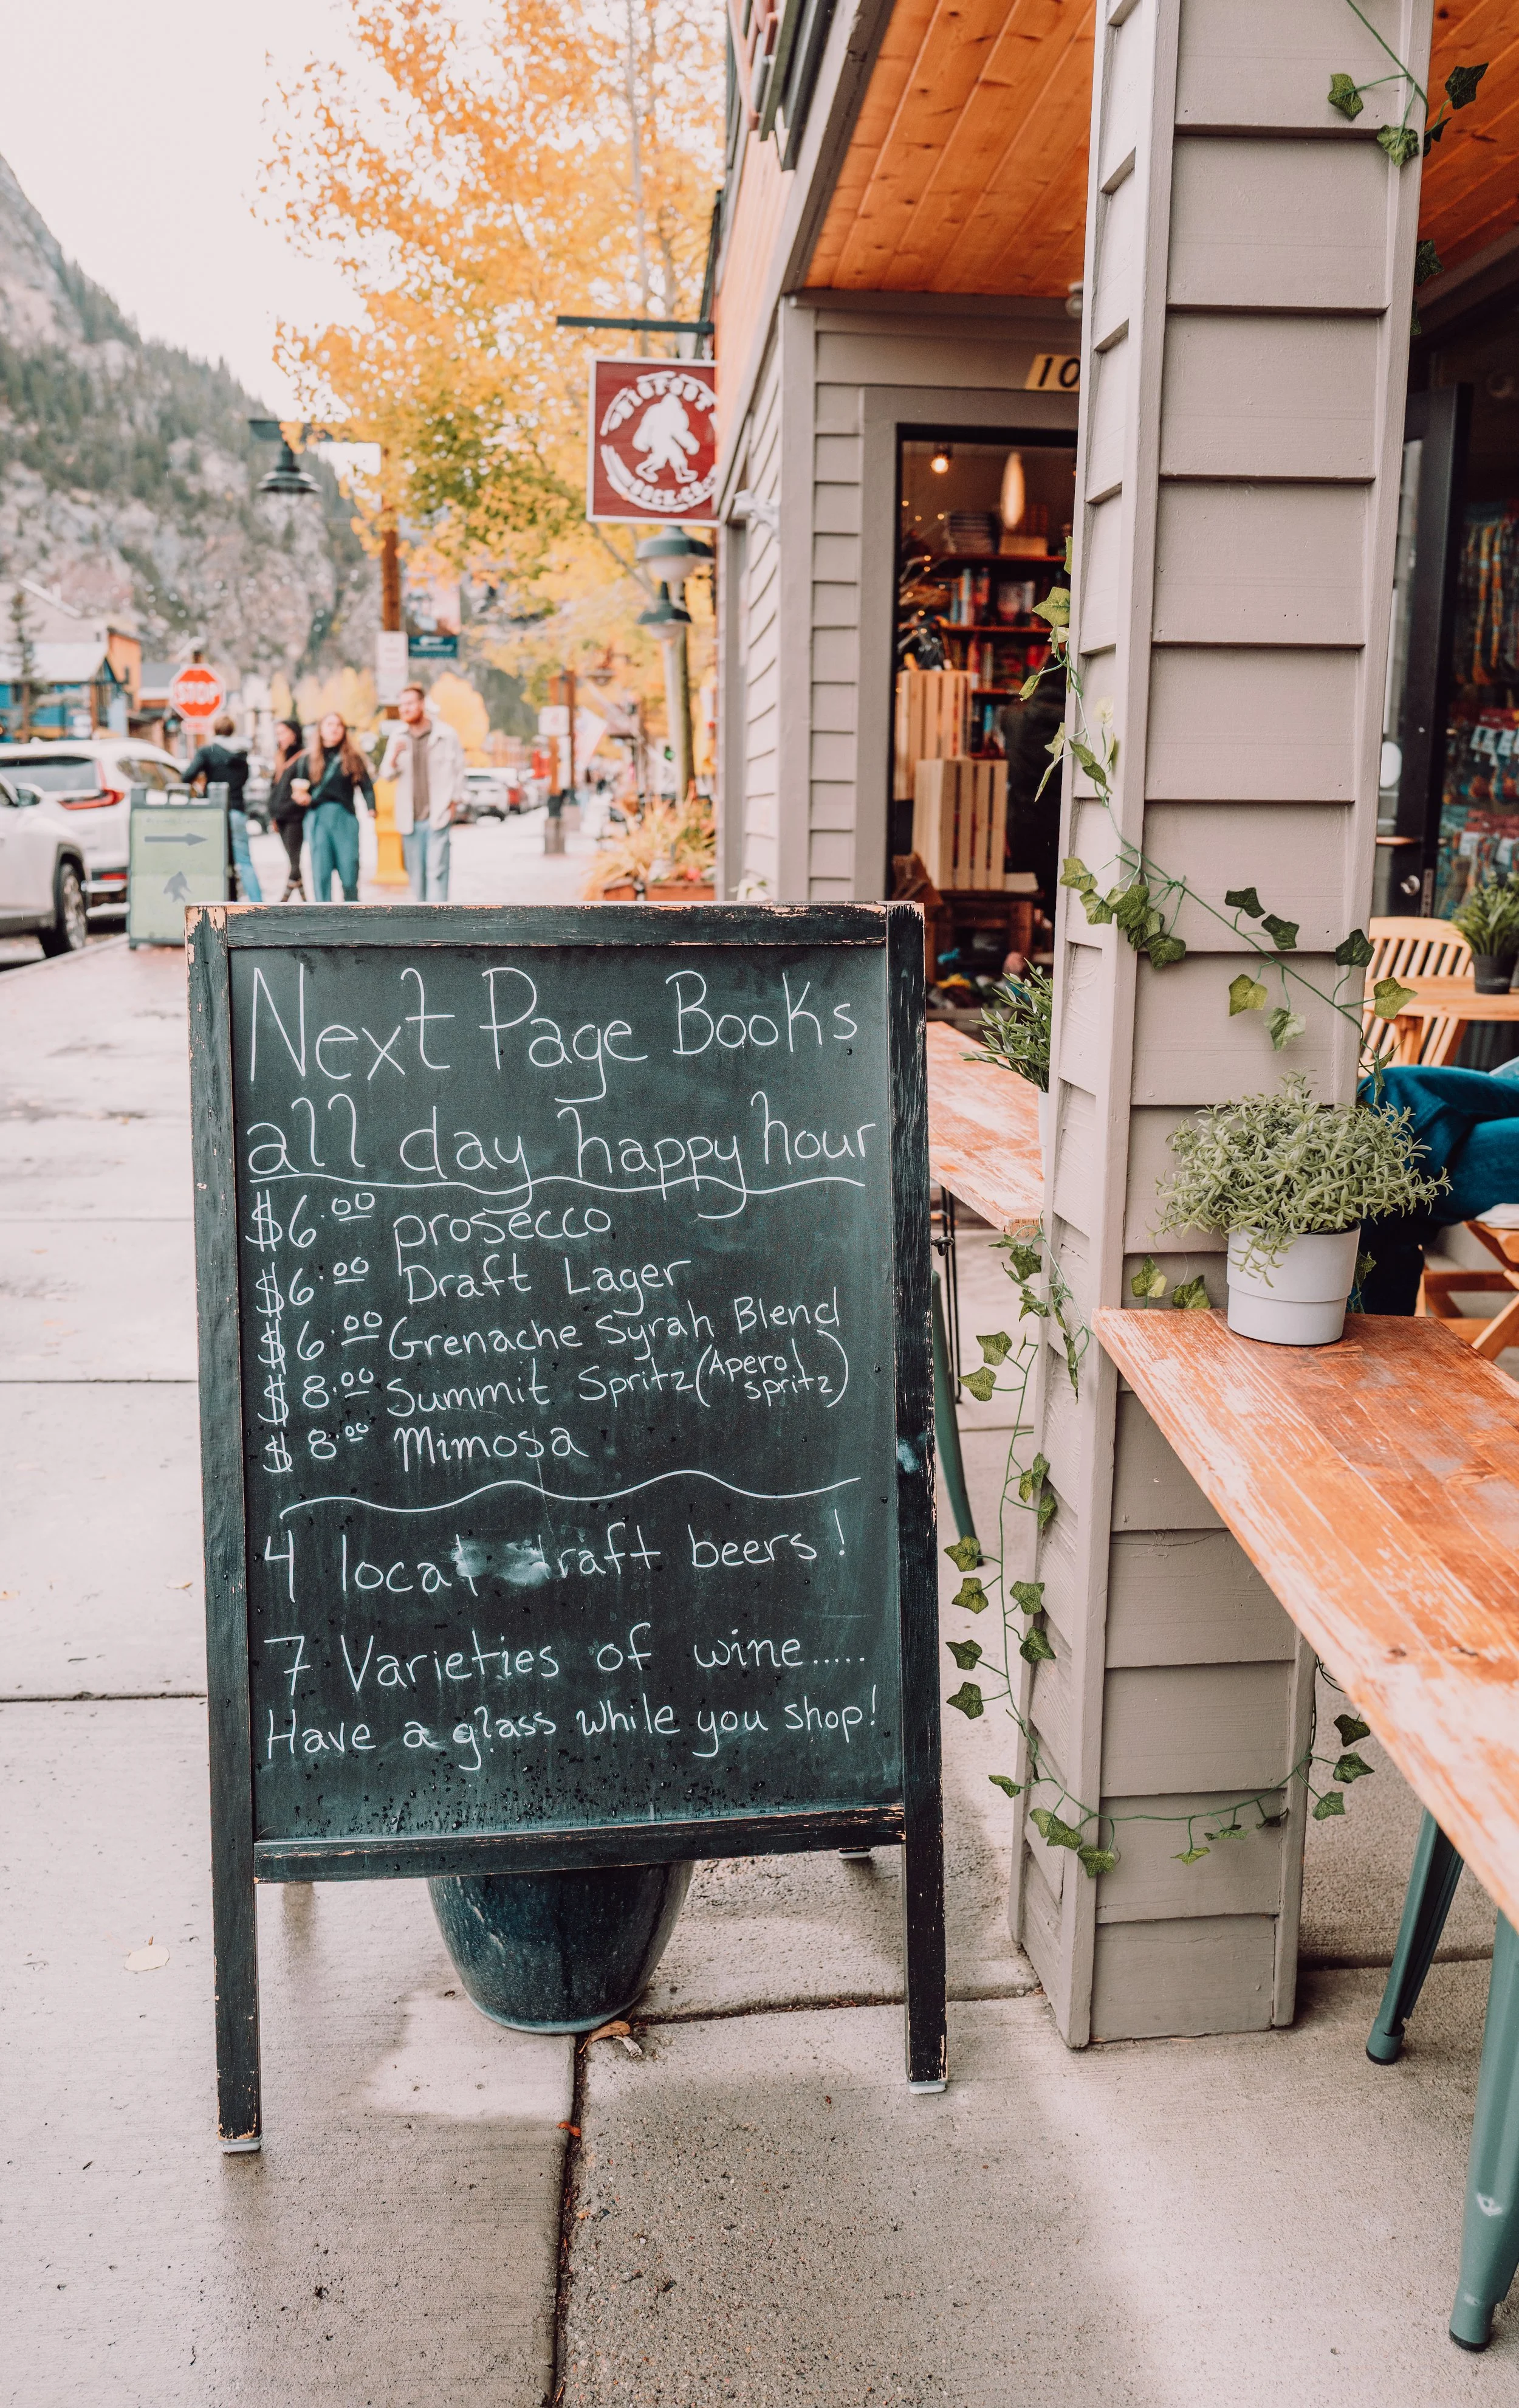 BIGFOOT
SOCK CO
10
STOP
Next Page Books
all day happy hour
$6.00 prosecco
$6.00 Draft Lager
$6.00 Grenache Syrah Blend
$8.00 Summit Spritz (Aperol spritz)
$8.00 Mimosa
4 local raft beers!
7 Varieties of wine.....
Have a glass while you shop!